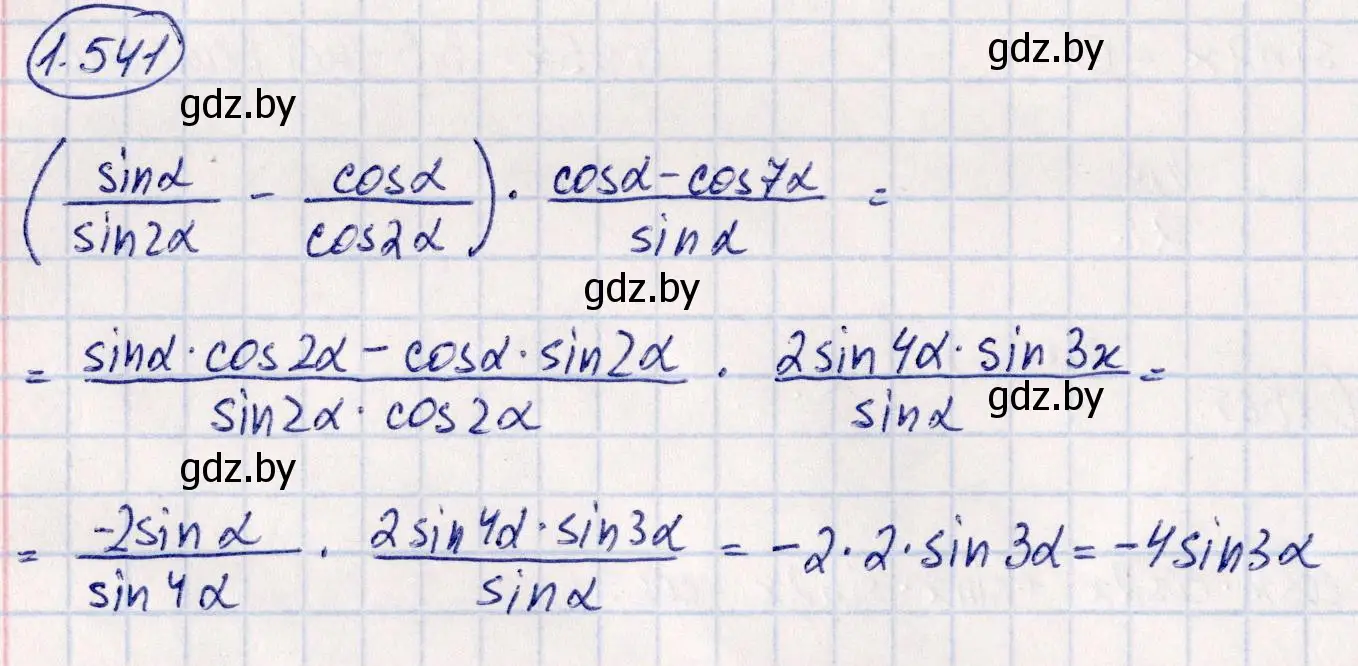 1.541
gdz.by
gdz.by
(sinα/sin2α - cosα/cos2α) · (cosα - cos7α)/sinα =
gdz.by
= (sinα · cos2α - cosα · sin2α)/(sin2α · cos2α) · (2sin4α · sin3x)/sinα =
gdz.by
gdz.by
= -2sinα/sin4α · (2sin4α · sin3α)/sinα = -2·2·sin3α = -4sin3α